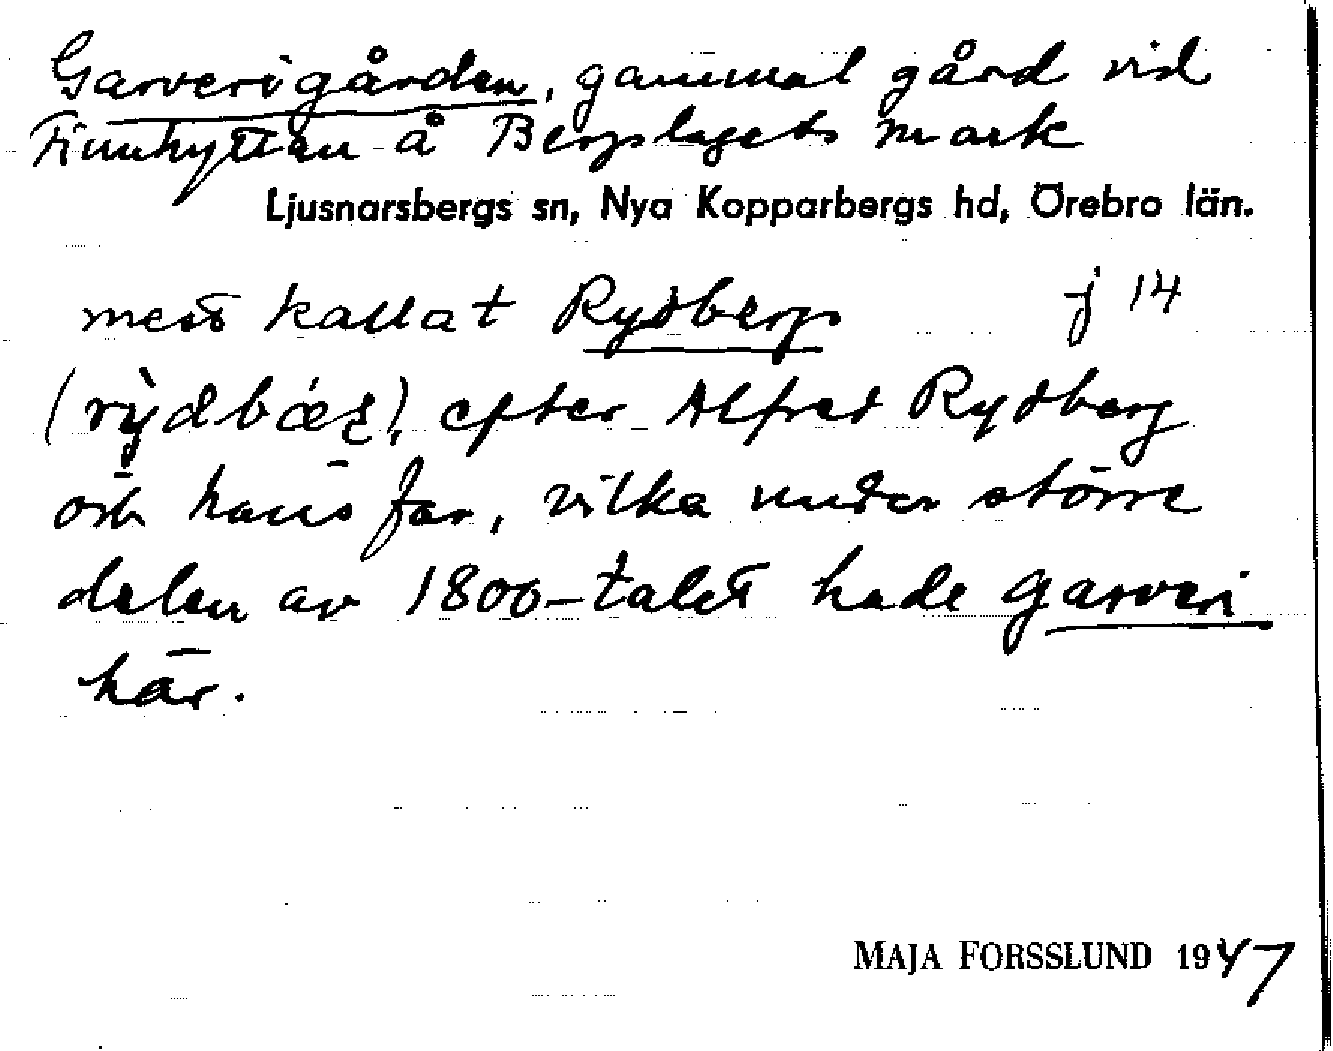 Garverigården, gammal gård vid
Finnhyttan å Bergslagets mark
Ljusnarsbergs sn, Nya Kopparbergs hd, Örebro län.
mest kallat Rydbergs j 14
(rỳdbæ̀ʒ), efter Alfred Rydberg
och hans far, vilka under större
delen av 1800-talet hade garveri
här.
MAJA FORSSLUND 1947